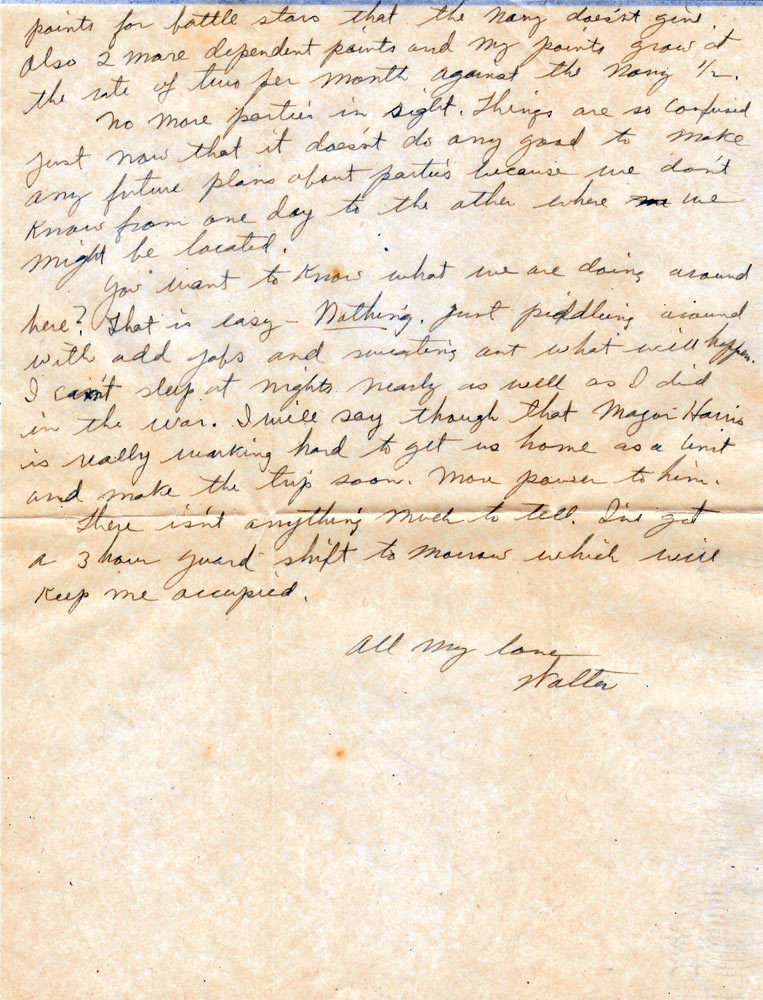 points for battle stars that the Navy doesn't give.
Also 2 more dependent points and my points grow at
the rate of two per month against the Navy 1/2.
No more parties in sight. Things are so confused
just now that it doesn't do any good to make
any future plans about parties because we don't
know from one day to the other where we
might be located.
You want to know what we are doing around
here? That is easy – Nothing. Just piddling around
with odd jobs and sweating out what will happen.
I can't sleep at nights nearly as well as I did
in the war. I will say though that Major Harris
is really working hard to get us home as a unit
and make the trip soon. More power to him.
There isn't anything much to tell. I've got
a 3 hour guard shift to morrow which will
keep me occupied.
All my love
Walter